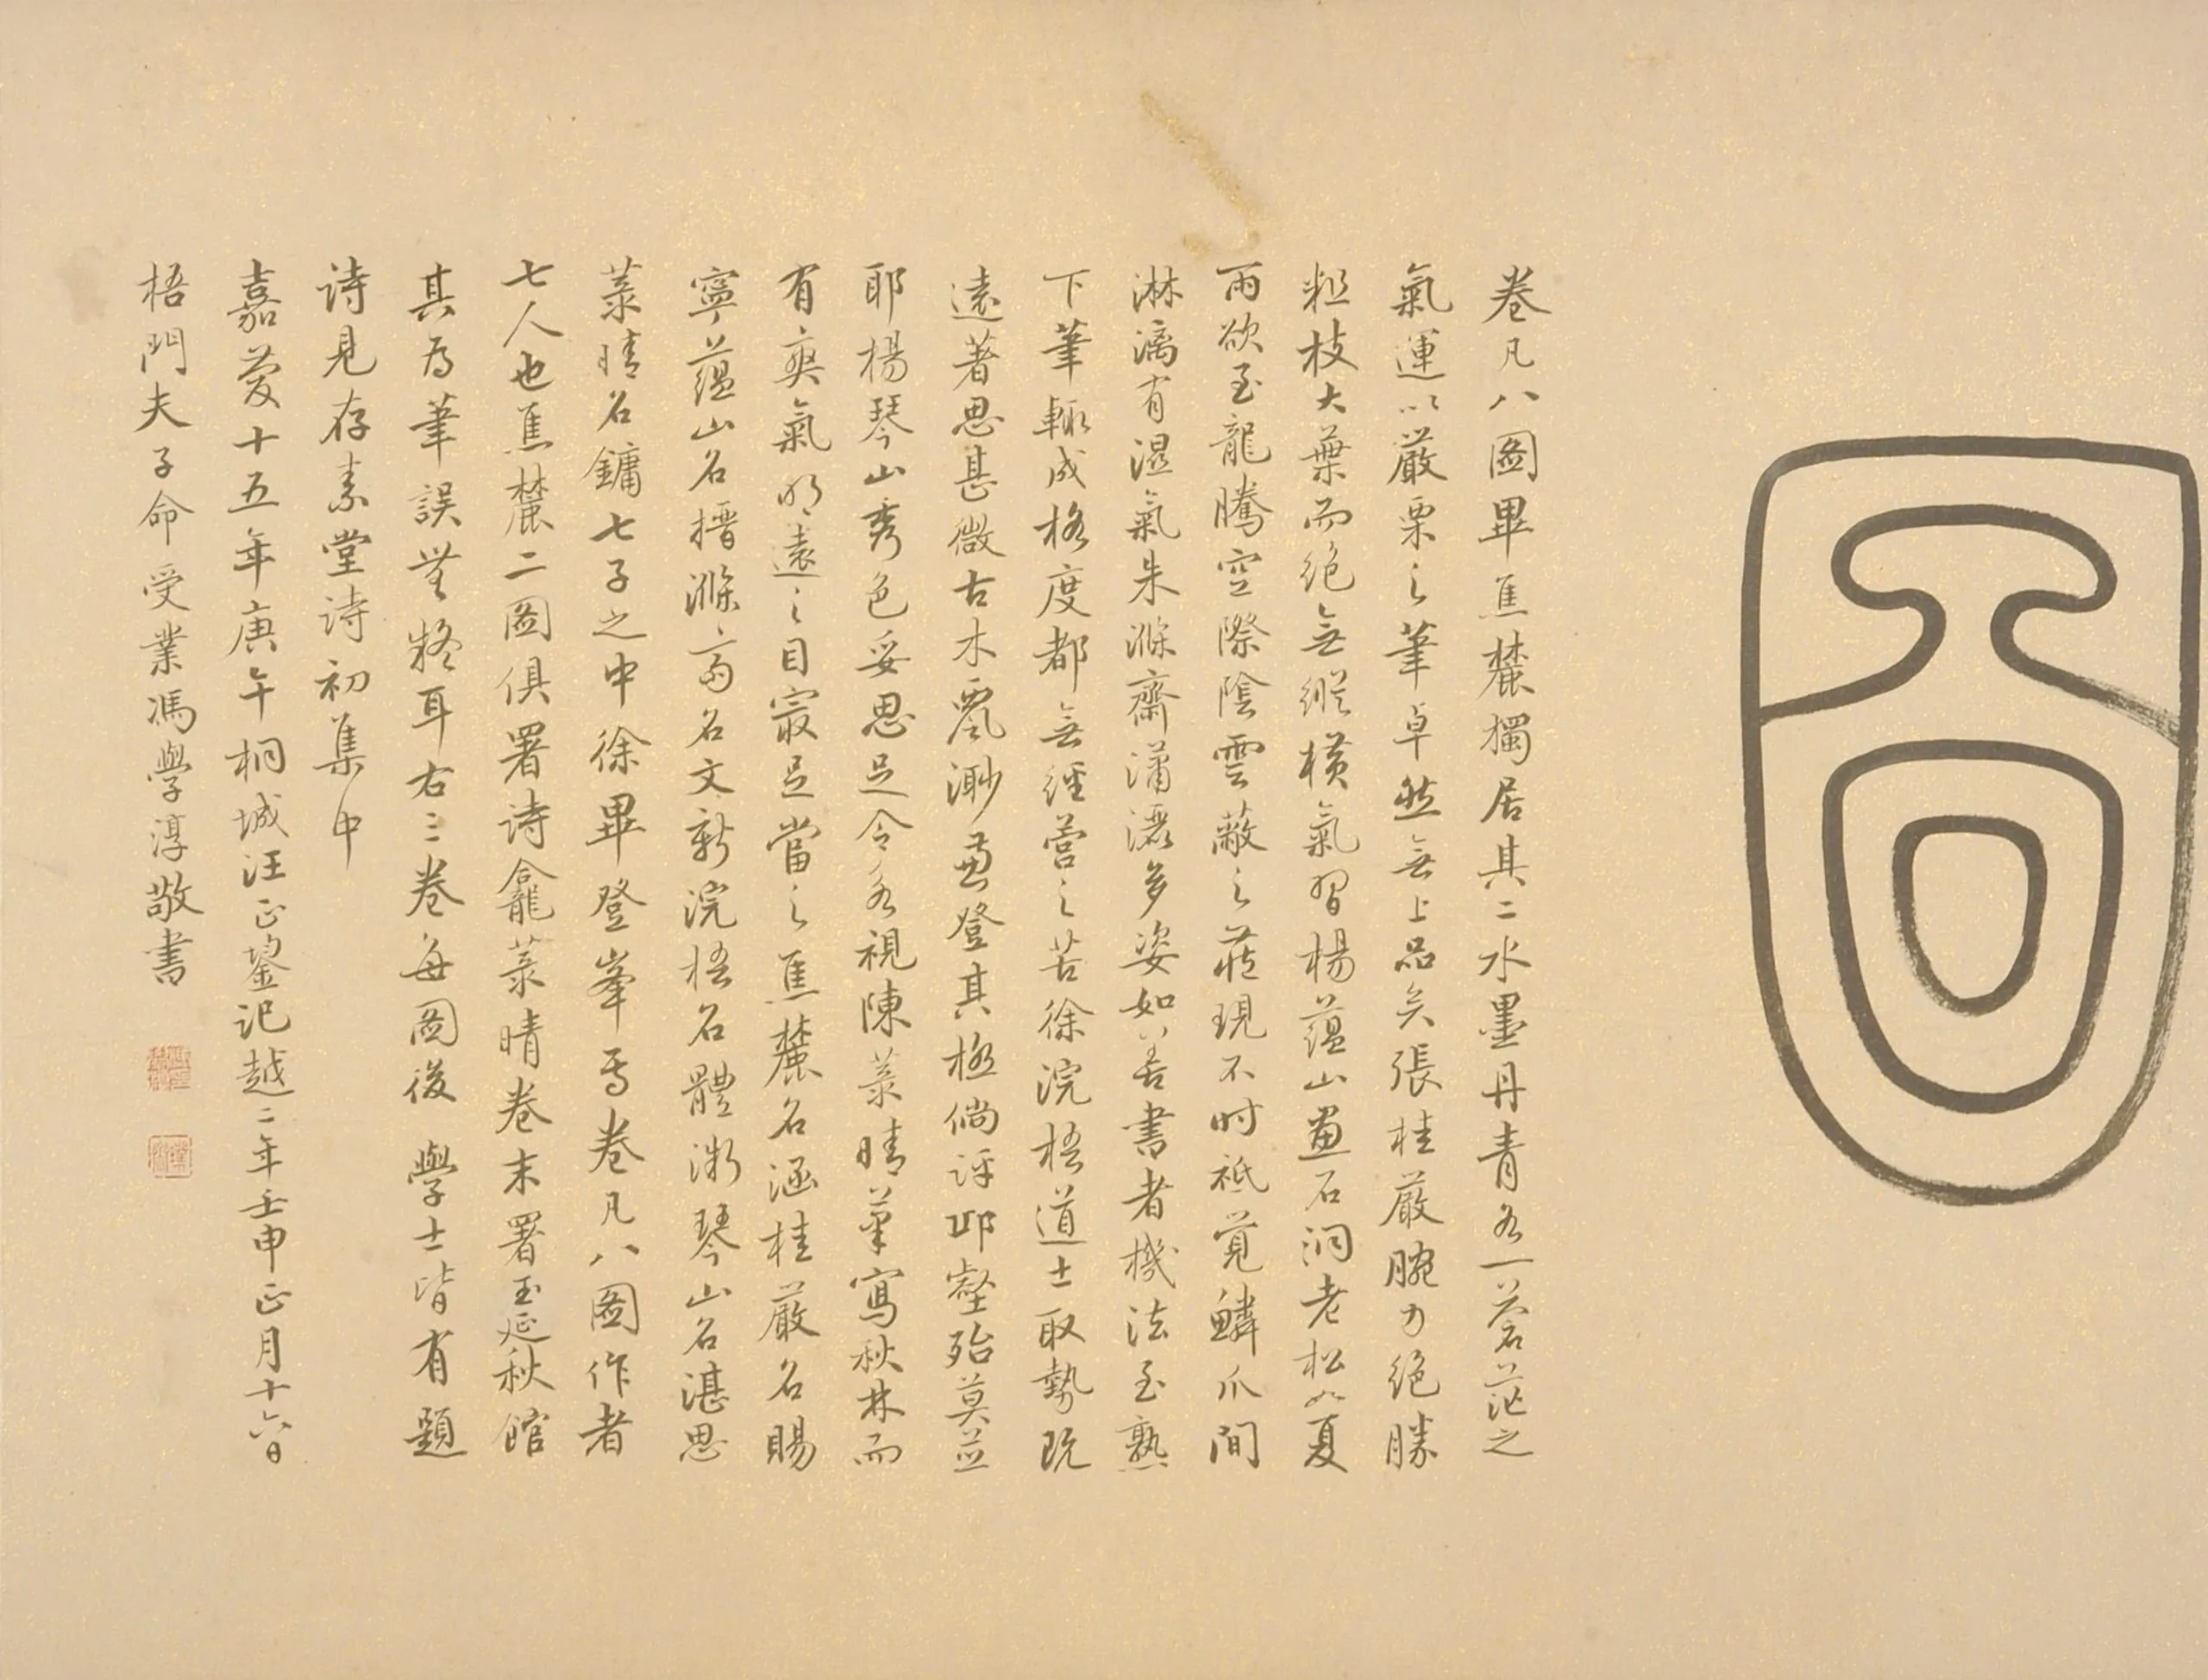 卷凡八圖畢焦麓獨居其二水墨丹青各一蒼茫之
氣運以嚴栗之筆卓然無上品矣張桂巖腕力絕勝
粗枝大葉而絕無縱橫氣習楊蘊山畫石澗老松如夏
雨欲至龍騰空際陰雲蔽之蔽現不时祗覚鱗爪間
淋漓有濕氣朱滌齋瀟灑多姿如善書者機法至熟
下筆輒成格度都無經營之苦徐浣梧道士取勢既
遠著思甚微古木飄渺更登其極倘評邱壑殆莫並
耶楊琴山秀色妥思足令各視陳菉晴筆寫秋林而
有爽氣明遠之目寂足當之焦麓名涵桂嚴名賜
寧蘊山名搢滌齋名文新浣梧名體㵧琴山名湛思
菉晴名鏞七子之中徐畢登峯焉卷凡八圖作者
七人也焦麓二圖俱署詩龕菉晴卷末署玉延秋館
其為筆誤無疑耳右三卷每圖後學士皆有題
詩見存素堂詩初集中
嘉慶十五年庚午桐城汪正鋆記越二年壬申正月十六日
梧門夫子命受業馮學淳敬書